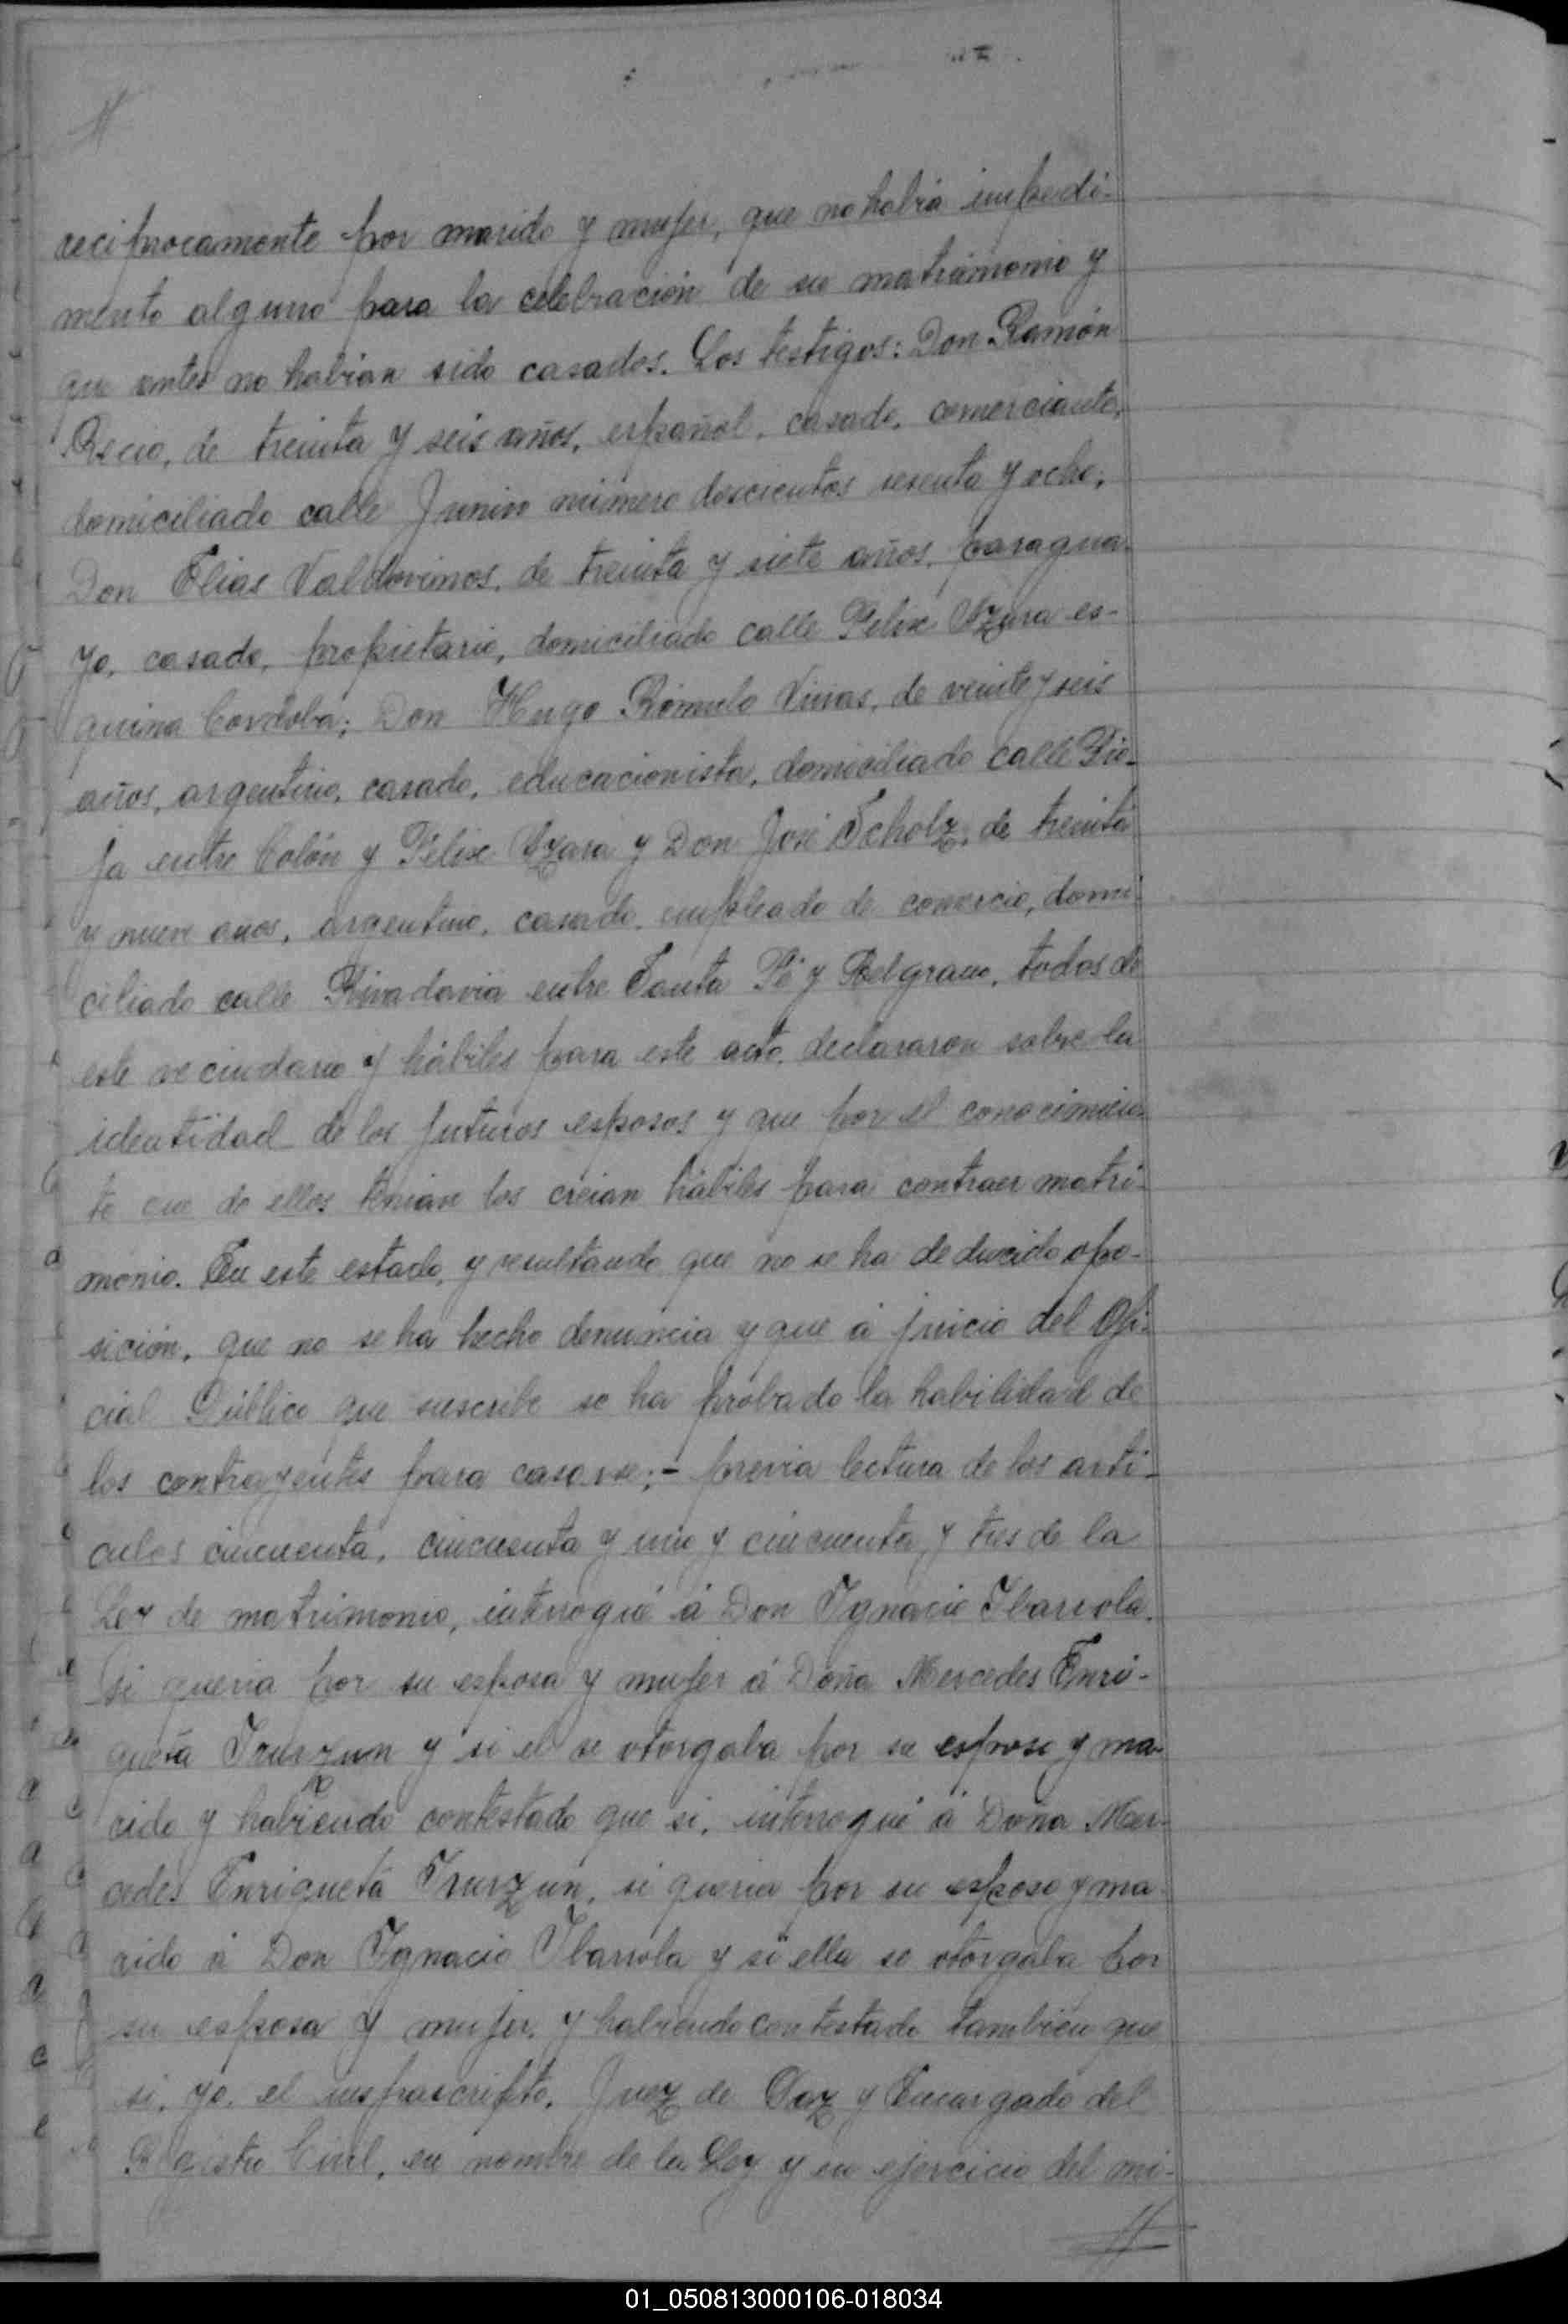 reciprocamente por marido y mujer, que no habia impedi-
mento alguno para la celebración de su matrimonio y
que antes no habian sido casados. Los testigos: Don Ramón
Recio, de treinta y seis años, español, casado, comerciante,
domiciliado calle Junin número doscientos sesenta y ocho;
Don Elias Valdovinos, de treinta y siete años, paragua-
yo, casado, propietario, domiciliado calle Felix Azara es-
quina Cordoba; Don Hugo Rómulo Viñas, de veinte y seis
años, argentino, casado, educacionista, domiciliado calle Rio-
ja entre Colón y Félix Azara y Don José Scholz, de treinta
y nueve años, argentino, casado, empleado de comercio, domi-
ciliado calle Rivadavia entre Santa Fé y Belgrano, todos de
este vecindario y hábiles para este acto, declararon sobre la
identidad de los futuros esposos y que por el conocimien-
to que de ellos tenian los creian hábiles para contraer matri-
monio. En este estado, y resultando que no se ha deducido opo-
sición, que no se ha hecho denuncia y que á juicio del Ofi-
cial Público que suscribe se ha probado la habilidad de
los contrayentes para casarse;- previa lectura de los arti-
culos cincuenta, cincuenta y uno y cincuenta y tres de la
Ley de matrimonio, interrogué á Don Ygnacio Ybarrola,
si queria por su esposa y mujer á Doña Mercedes Enri-
queta Yrurzun y si el se otorgaba por su esposo y ma-
rido y habiendo contestado que si, interrogué á Doña Mer-
cedes Enriqueta Yrurzun, si queria por su esposo y ma
rido á Don Ygnacio Ybarrola y si ella se otorgaba por
su esposa y mujer, y habiendo contestado tambien que
si, yo, el infrascripto, Juez de Paz y Encargado del
Registro Civil, en nombre de la Ley y en ejercicio del mi-
01_050813000106-018034